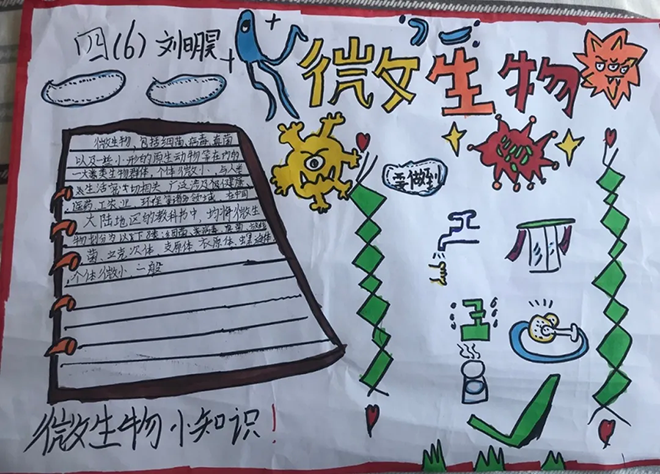 四(6) 刘明昊
微生物
微生物,包括细菌、病毒、真菌
以及一些小形的原生动物等在内的
一大类生物群体,个体微小,与人类
生活密切相关。广泛涉及健康、
医药、工农业、环保等诸多领域。在中国
大陆地区的教科书中,均将微生
物划分为以下8类:细菌、病毒、真菌、放线
菌、立克次体、支原体、衣原体、螺旋体
个体微小,一般
要做到
微生物小知识!